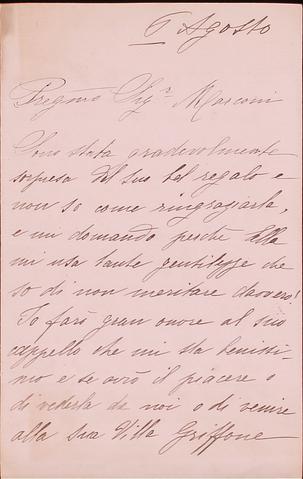 6 Agosto
Pregmo Sigr Marconi
Sono stata gradevolmente
sorpresa del suo bel regalo e
non so come ringraziarla,
e mi domando perchè Ella
mi usa tante gentilezze che
so di non meritare davvero!
Io farò gran onore al suo
cappello che mi sta benissi-
mo e se avrò il piacere o
di vederla da noi o di venire
alla sua Villa Griffone